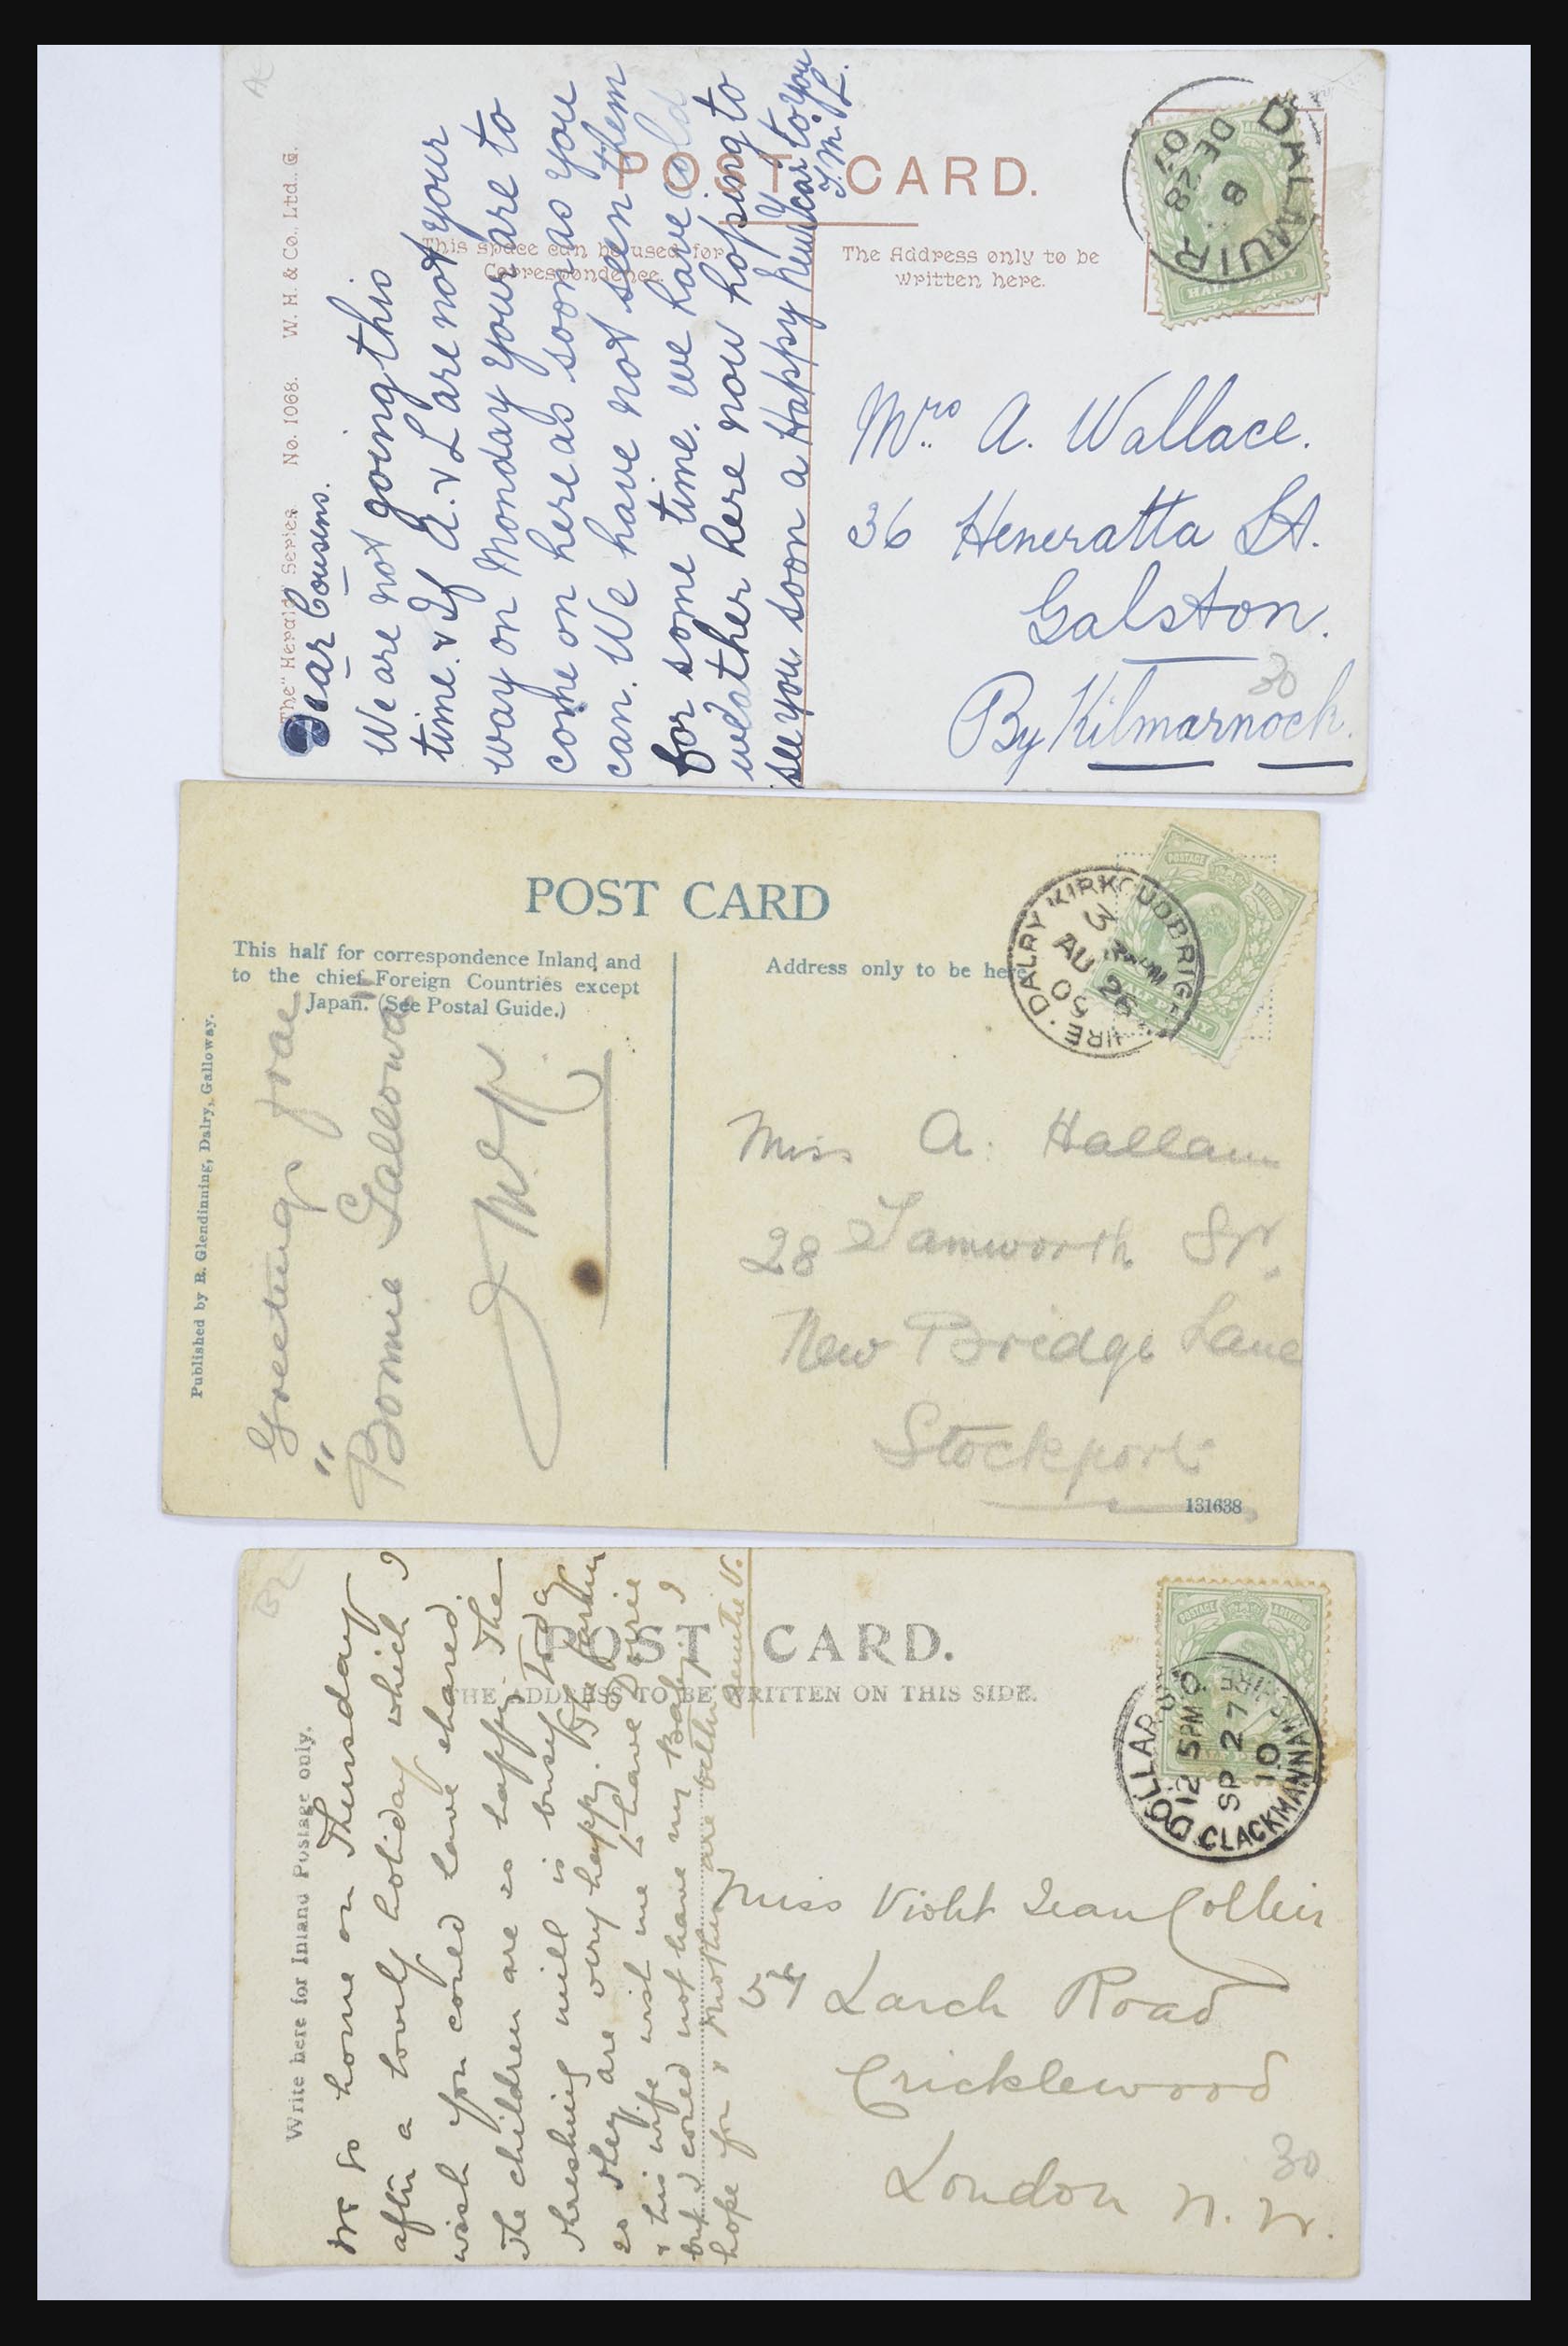 "The" Herald Series No. 1068. W. H. & Co., Ltd., G.
POST CARD.
This space can be used for
Correspondence.
The Address only to be
written here.
DALMUIR
8
DE 28
07
HALFPENNY
Dear Cousins.
We are not going this
time. & If A. & L are not your
way on Monday your are to
come on here as soon as you
can. We have not seen them
for some time. we have cold
weather here now hoping to
see you soon a Happy New Year to you
Mrs A. Wallace.
36 Heneratta St.
Galston.
By Kilmarnock.
30
POST CARD
This half for correspondence Inland and
to the chief Foreign Countries except
Japan. (See Postal Guide.)
Address only to be here
Published by R. Glendinning, Dalry, Galloway.
DALRY KIRKCUDBRIGHTSHIRE
AU 26
09
POSTAGE
Greetings frae
"Bonnie Gallowa"
Miss A. Hallam
28 Tamworth St.
New Bridge Lane
Stockport
131638
POST CARD.
THE ADDRESS TO BE WRITTEN ON THIS SIDE.
Write here for Inland Postage only.
DOLLAR S.O.
12 5PM
SP 27
10
CLACKMANNANSHIRE
We go home on Thursday
after a lovely holiday which I
wish you could have shared.
The children are so happy. The
threshing mill is busy today
so they are very happy.
& his wife wish me to have
but I could not leave my Baby. I
hope you & Mother are better
Miss Violet Jean Collier
54 Larch Road
Cricklewood
London N.W.
30